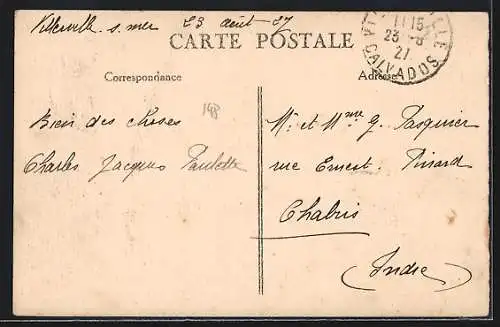 Villerville s. mer 23 août 27
CARTE POSTALE
Correspondance
Adresse
11 15
23 - 8
27
CALVADOS
148
Bien des choses
Charles Jacques Paulette
Mr. et Mme G. Pasquier
rue Ernest Pinard
Chabris
(Indre)